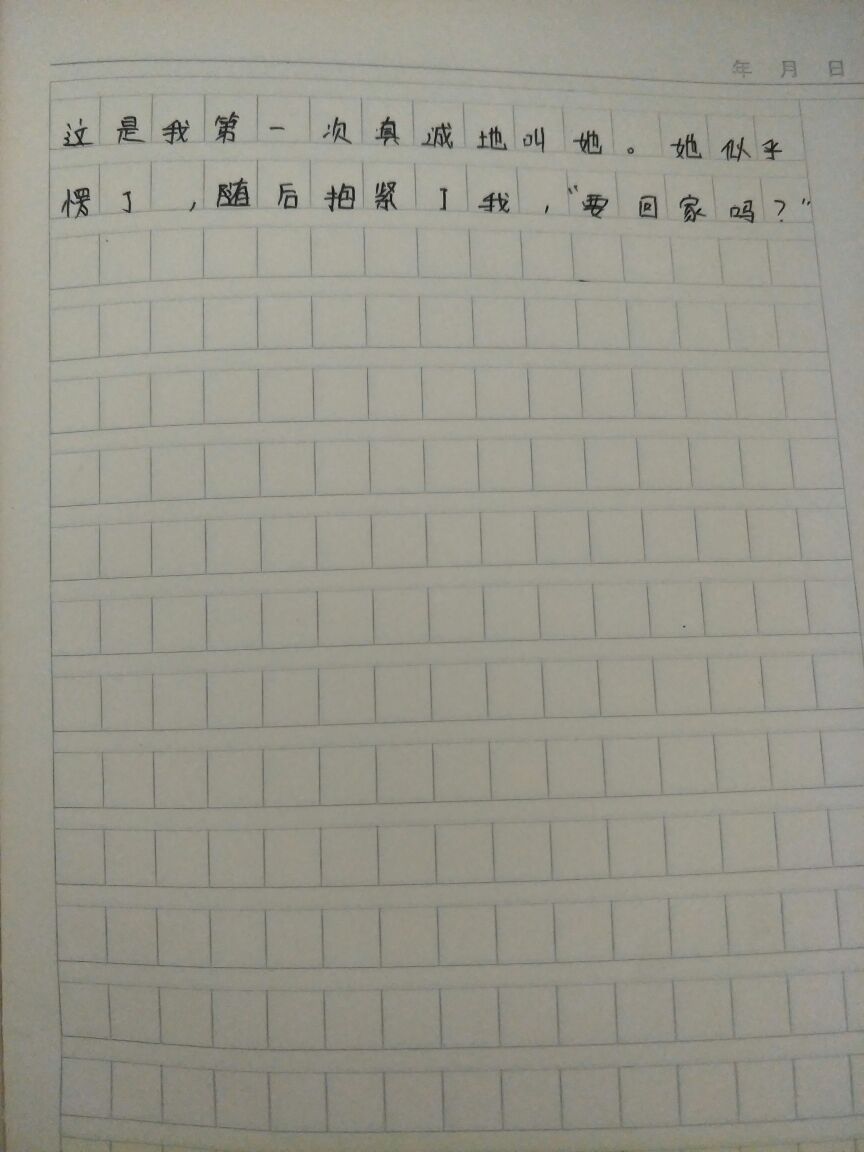 年 月 日
这是我第一次真诚地叫她。她似乎
愣了，随后抱紧了我，“要回家吗？”